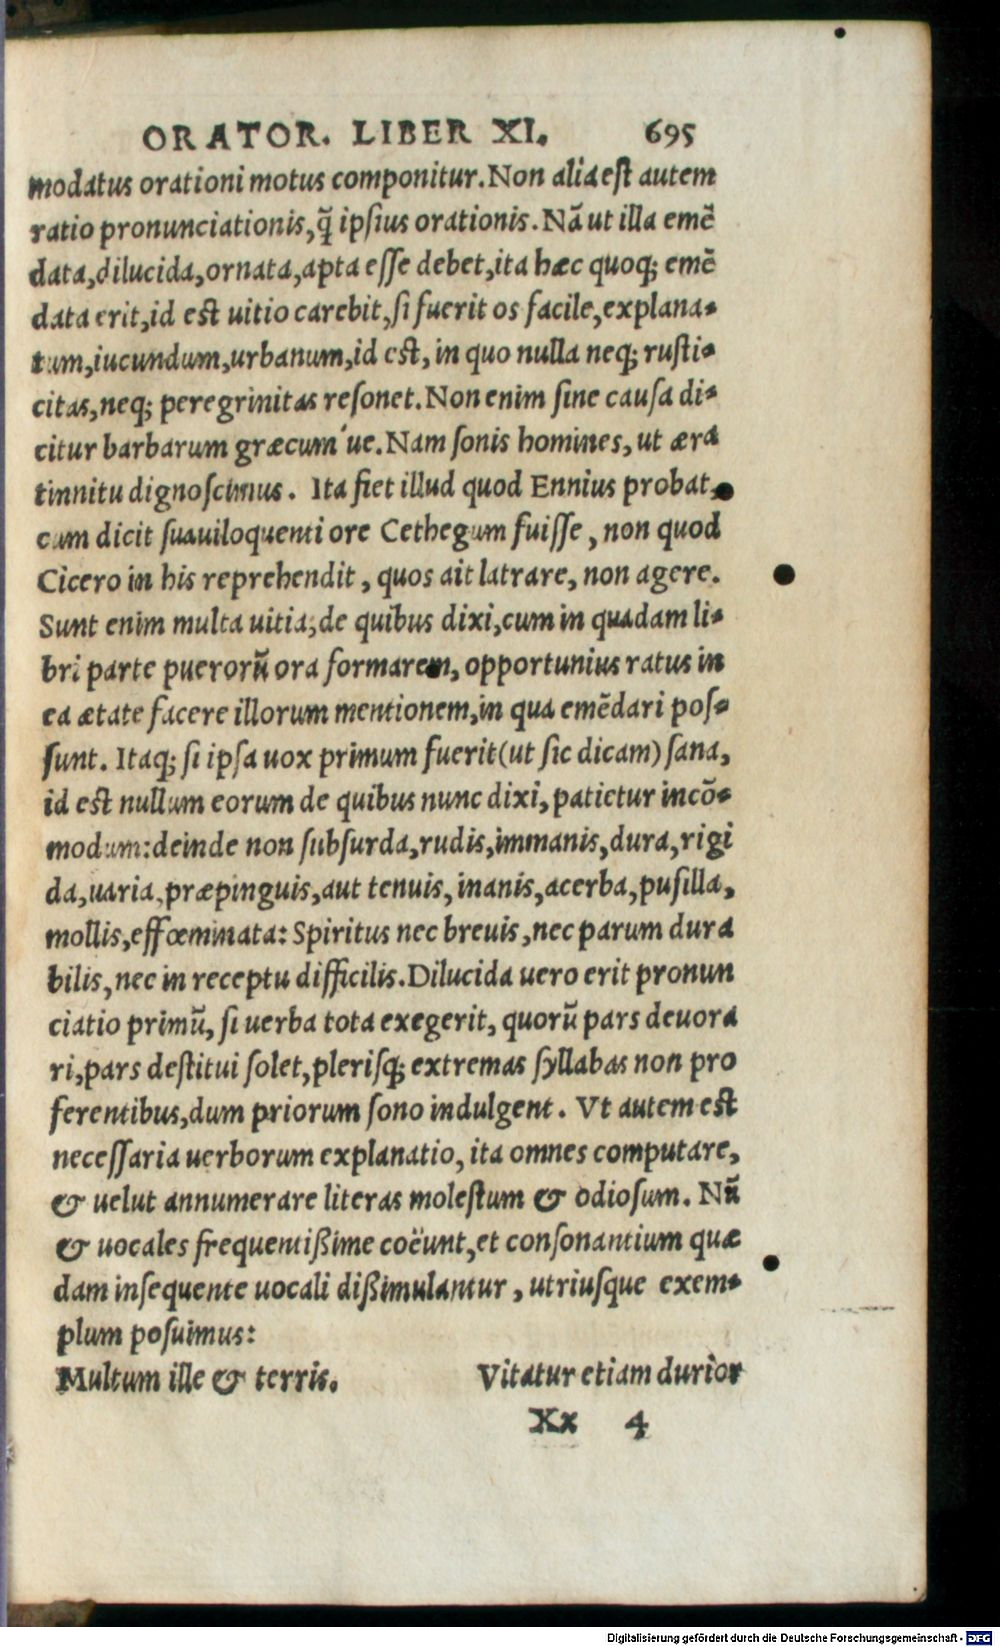 ORATOR. LIBER XI. 695
modatus orationi motus componitur. Non alia est autem
ratio pronunciationis, q̃ ipsius orationis. Nã ut illa emẽ
data, dilucida, ornata, apta esse debet, ita hæc quoq; emẽ
data erit, id est uitio carebit, si fuerit os facile, explana-
tum, iucundum, urbanum, id est, in quo nulla neq; rusti-
citas, neq; peregrinitas resonet. Non enim sine causa di-
citur barbarum græcum´ue. Nam sonis homines, ut æra
tinnitu dignoscimus. Ita fiet illud quod Ennius probat,
cum dicit suauiloquenti ore Cethegum fuisse, non quod
Cicero in his reprehendit, quos ait latrare, non agere.
Sunt enim multa uitia, de quibus dixi, cum in quadam li-
bri parte puerorũ ora formarem, opportunius ratus in
ea ætate facere illorum mentionem, in qua emẽdari pos-
sunt. Itaq; si ipsa uox primum fuerit (ut sic dicam) sana,
id est nullum eorum de quibus nunc dixi, patietur incõ-
modum: deinde non subsurda, rudis, immanis, dura, rigi
da, uaria, præpinguis, aut tenuis, inanis, acerba, pusilla,
mollis, effœminata: Spiritus nec breuis, nec parum dura
bilis, nec in receptu difficilis. Dilucida uero erit pronun
ciatio primũ, si uerba tota exegerit, quorũ pars deuora
ri, pars destitui solet, plerisq; extremas syllabas non pro
ferentibus, dum priorum sono indulgent. Vt autem est
necessaria uerborum explanatio, ita omnes computare,
& uelut annumerare literas molestum & odiosum. Nũ
& uocales frequentißime coëunt, et consonantium quæ
dam insequente uocali dißimulantur, utriusque exem-
plum posuimus:
Multum ille & terris. Vitatur etiam durior
Xx 4
Digitalisierung gefördert durch die Deutsche Forschungsgemeinschaft - DFG